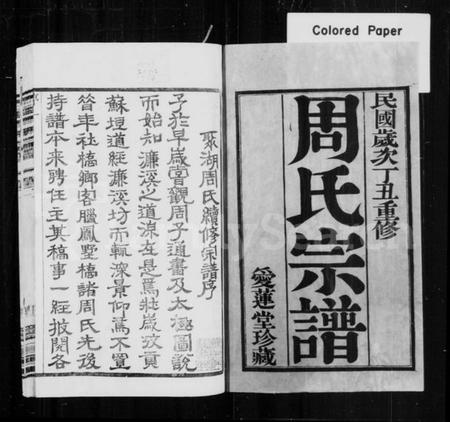 Colored Paper
民國歲次丁丑重修
周氏宗譜
愛蓮堂珍藏
聚湖周氏續修宗譜序
予於早歲嘗觀周子通書及太極圖說
而始知濂溪之道源在是焉壯歲攷貢
蘇垣道經濂溪坊而輒深景仰焉不置
昔年社橋鄉客臘鳳墅橋諸周氏先後
持譜本来聘任主其稿事一經披閱各